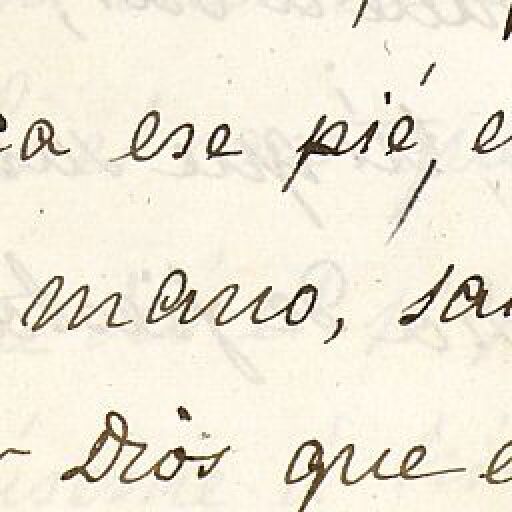 ca ese pié, e
mano, sa
Dios que e